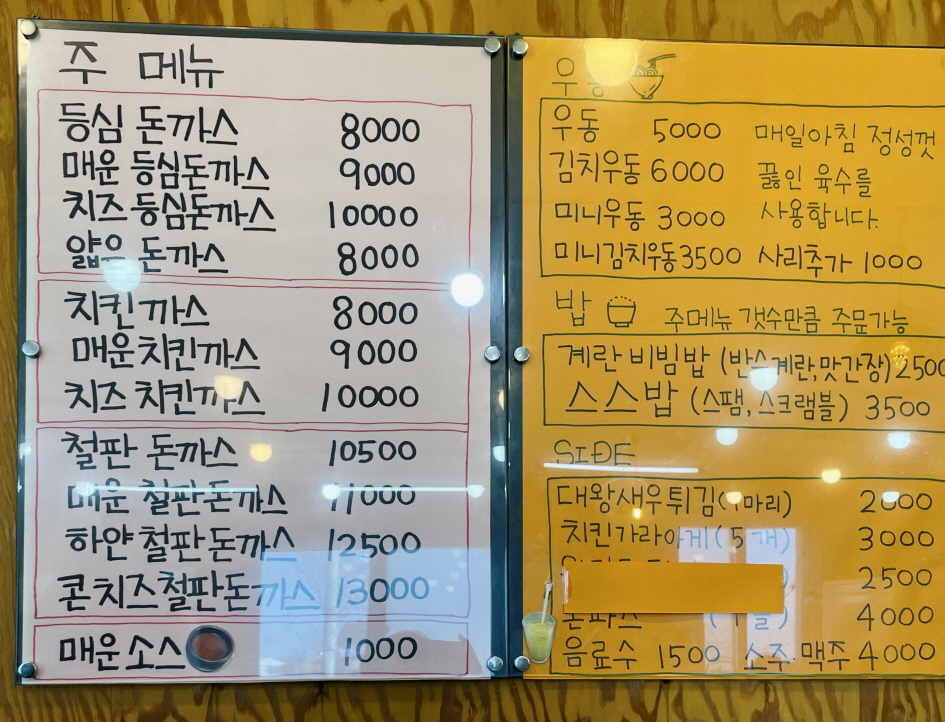 주 메뉴
등심 돈까스 8000
매운 등심돈까스 9000
치즈 등심돈까스 10000
얇은 돈까스 8000
치킨 까스 8000
매운 치킨까스 9000
치즈 치킨까스 10000
철판 돈까스 10500
매운 철판돈까스 11000
하얀 철판돈까스 12500
콘치즈철판돈까스 13000
매운소스 1000
우동
우동 5000
김치우동 6000
미니우동 3000
미니김치우동 3500
매일아침 정성껏
끓인 육수를
사용합니다.
사리추가 1000
밥 주메뉴 갯수만큼 주문가능
계란비빔밥 (반스계란,맛간장) 2500
스스밥 (스팸,스크램블) 3500
SIDE
대왕새우튀김(1마리) 2000
치킨가라아게(5개) 3000
2500
4000
음료수 1500 소주.맥주 4000